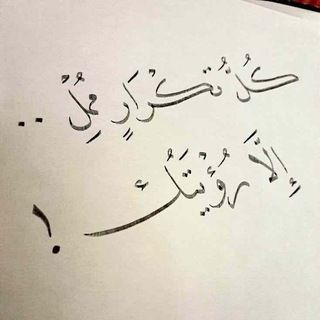 كُلُّ تَكْرَارٍ مُمِلٌ ..
إِلَّا رُؤْيَتَكَ !